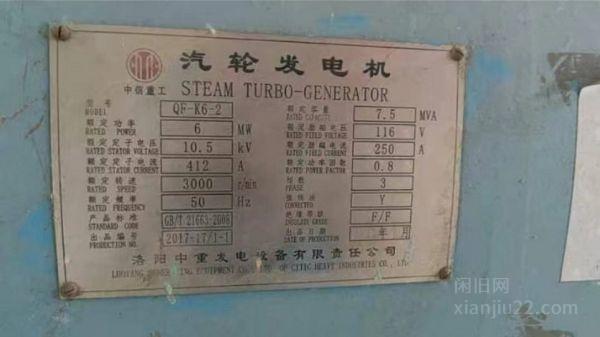 汽轮发电机
中信重工 STEAM TURBO-GENERATOR
型号 QF-K6-2
MODEL
额定容量 7.5 MVA
RATED CAPACITY
额定功率 6 MW
RATED POWER
额定励磁电压 116 V
RATED FIELD VOLTAGE
额定定子电压 10.5 kV
RATED STATOR VOLTAGE
额定励磁电流 250 A
RATED FIELD CURRENT
额定定子电流 412 A
RATED STATOR CURRENT
额定功率因数 0.8
RATED POWER FACTOR
额定转速 3000
RATED SPEED
相数 3
PHASE
额定频率 50 Hz
RATED FREQUENCY
接线法 Y
CONNECTED
产品标准 GB/T 21663-2008
STANDARD CODE
绝缘等级 F/F
INSULATED GRADE
出品编号 2017-17/1-1
PRODUCTION NO.
出品日期 年 月
DATE OF PRODUCTION
洛阳中重发电设备有限责任公司
LUOYANG EQUIPMENT OF CITIC HEAVY INDUSTRIES CO.,
闲旧网
xianjiu22.com